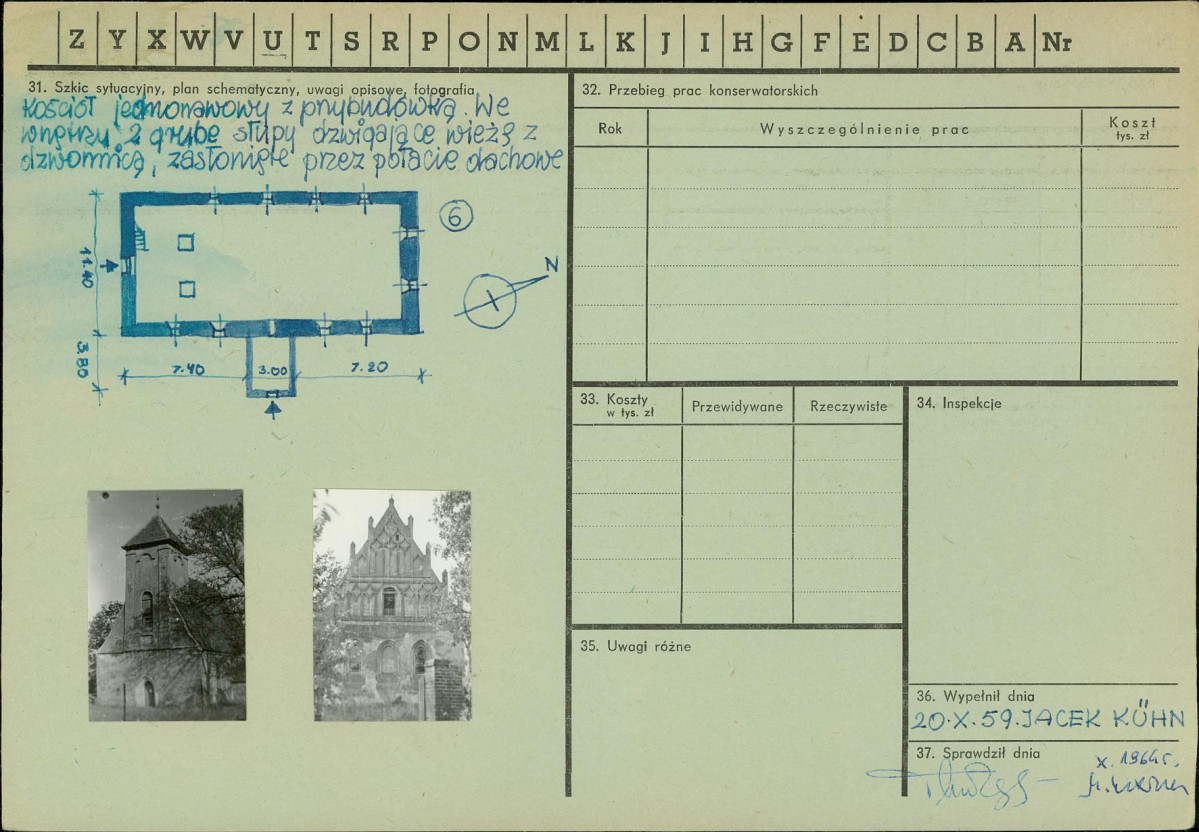 Z Y X W V U T S R P O N M L K J I H G F E D C B A Nr
31. Szkic sytuacyjny, plan schematyczny, uwagi opisowe, fotografia
Kościół jednonawowy z przybudówką. We
wnętrzu 2 grube słupy dzwigające wieżę z
dzwonnicą, zasłonięte przez połacie dachowe
6
N
11.40
3.80
7.40
3.00
7.20
32. Przebieg prac konserwatorskich
Rok
Wyszczególnienie prac
Koszt
tys. zł
33. Koszty
w tys. zł
Przewidywane
Rzeczywiste
34. Inspekcje
35. Uwagi różne
36. Wypełnił dnia
20.X.59. JACEK KÜHN
37. Sprawdził dnia
X. 1964r.